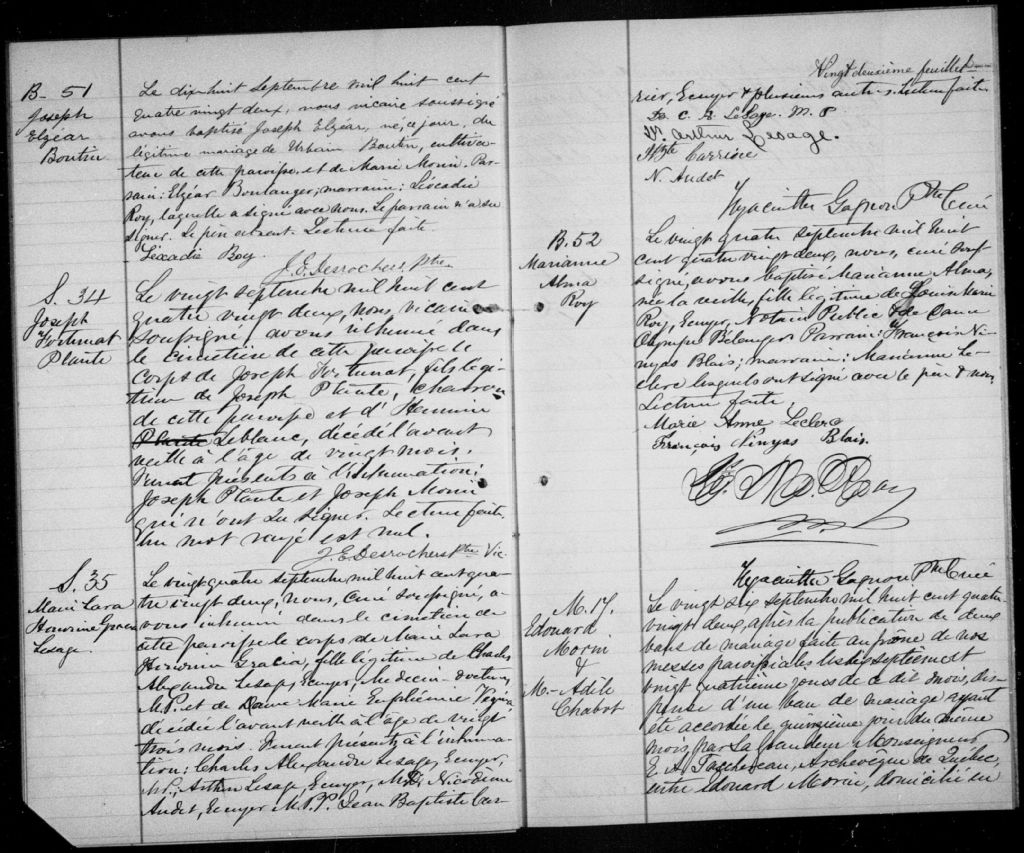 B- 51
Joseph
Elzéar
Boutin
Le dix-huit Septembre mil huit cent
quatre vingt deux, nous vicaire soussigné
avons baptisé Joseph Elzéar, né, ce jour, du
légitime mariage de Urbain Boutin, cultiva-
teur de cette paroisse, et de Marie Morin. Par-
rain: Elzéar Boulanger; marraine: Léocadie
Roy, laquelle a signé avec nous. Le parrain n'a su
signer. Le père absent. Lecture faite
Léocadie Roy.
J. E. Desrochers, ptre.
S. 34
Joseph
Fortunat
Plante
Le vingt septembre mil huit cent
quatre vingt deux, nous, vicaire
soussigné, avons inhumé dans
le cimetière de cette paroisse le
corps de Joseph Fortunat, fils légi-
time de Joseph Plante, charron
de cette paroisse et d'Hermine
Plante Leblanc, décédé l'avant
veille à l'âge de vingt mois.
Furent présents à l'inhumation:
Joseph Plante et Joseph Morin
qui n'ont su signer. Lecture faite.
Un mot rayé est nul.
J. E. Desrochers Ptre Vic.
S. 35
Marie Lara
Honorine Gracia
Lesage.
Le vingt quatre septembre mil huit cent qua-
tre vingt deux, nous, curé soussigné, a-
vons inhumé dans le cimetière de
cette paroisse le corps de Marie Lara
Honorine Gracia, fille légitime de Charles
Alexandre Lesage, Ecuyer, Médecin-docteur,
M.P. et de Dame Marie Euphémie Vézina
décédée l'avant veille à l'âge de vingt
trois mois. Furent présents à l'inhuma-
tion: Charles Alexandre Lesage, Ecuyer,
M.P., Arthur Lesage, Ecuyer, M.D., Nicodème
Audet, Ecuyer M.P.P. Jean Baptiste Car-
Vingt deuxième feuillet
rier, Ecuyer & plusieurs autres. Lecture faite
C. A. LeSage. M. P
Dr Arthur Lesage.
J Bte Carrière
N. Audet
Hyacinthe Gagnon Ptre Curé
B. 52
Marianne
Alma
Roy
Le vingt quatre septembre mil huit
cent quatre vingt deux, nous, curé sous-
signé, avons baptisé Marianne Alma,
née la veille, fille légitime de Louis Marie
Roy, Ecuyer, Notaire Public & de Dame
Olympe Bélanger. Parrain: François Ni-
nyas Blais; marraine: Marianne Le-
clerc lesquels ont signé avec le père & nous
Lecture faite.
Marie Anne Leclerc
François Ninyas Blais.
Ls. M. Roy
Hyacinthe Gagnon Ptre Curé
M. 17.
Edouard
Morin
&
M.- Adèle
Chabot
Le vingt six septembre mil huit cent quatre
vingt deux, après la publication de deux
bans de mariage faite au prône de nos
messes paroissiales les dix septième et
vingt quatrième jours de ce dit mois, dis-
pense d'un ban de mariage ayant
été accordée le quinzième jour du même
mois, par Sa Grandeur Monseigneur
E. A. Taschereau, Archevêque de Québec,
entre Edouard Morin, domicilié en